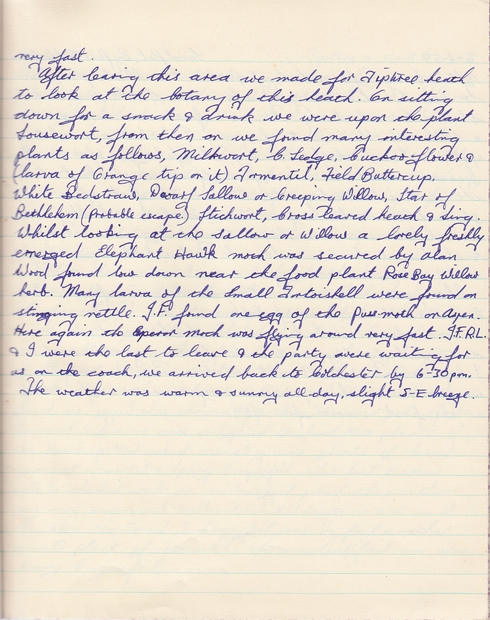 very fast.
After leaving this area we made for Tiptree heath
to look at the botany of this heath. On sitting
down for a snack & drink we were upon the plant
Lousewort, from then on we found many interesting
plants as follows, Milkwort, C. Sedge, Cuckoo flower &
(larva of Orange tip on it) Tormentil, Field Buttercup,
White Bedstraw, Dwarf Sallow or Creeping Willow, Star of
Bethlehem (Probable escape) Stichwort, Cross leaved heath & Ling.
Whilst looking at the sallow or Willow a lovely freshly
emerged Elephant Hawk moth was secured by Alan
Wood found low down near the food plant Rose Bay Willow
herb. Many larva of the Small Tortoishell were found on
stinging nettle. J.F. found one egg of the Puss-moth on Aspen.
Here again the Emperor moth was flying around very fast. J.F. R.L.
& I were the last to leave & the party were waiting for
us on the coach, we arrived back to Colchester by 6-30 pm.
The weather was warm & sunny all day, slight S-E breeze.